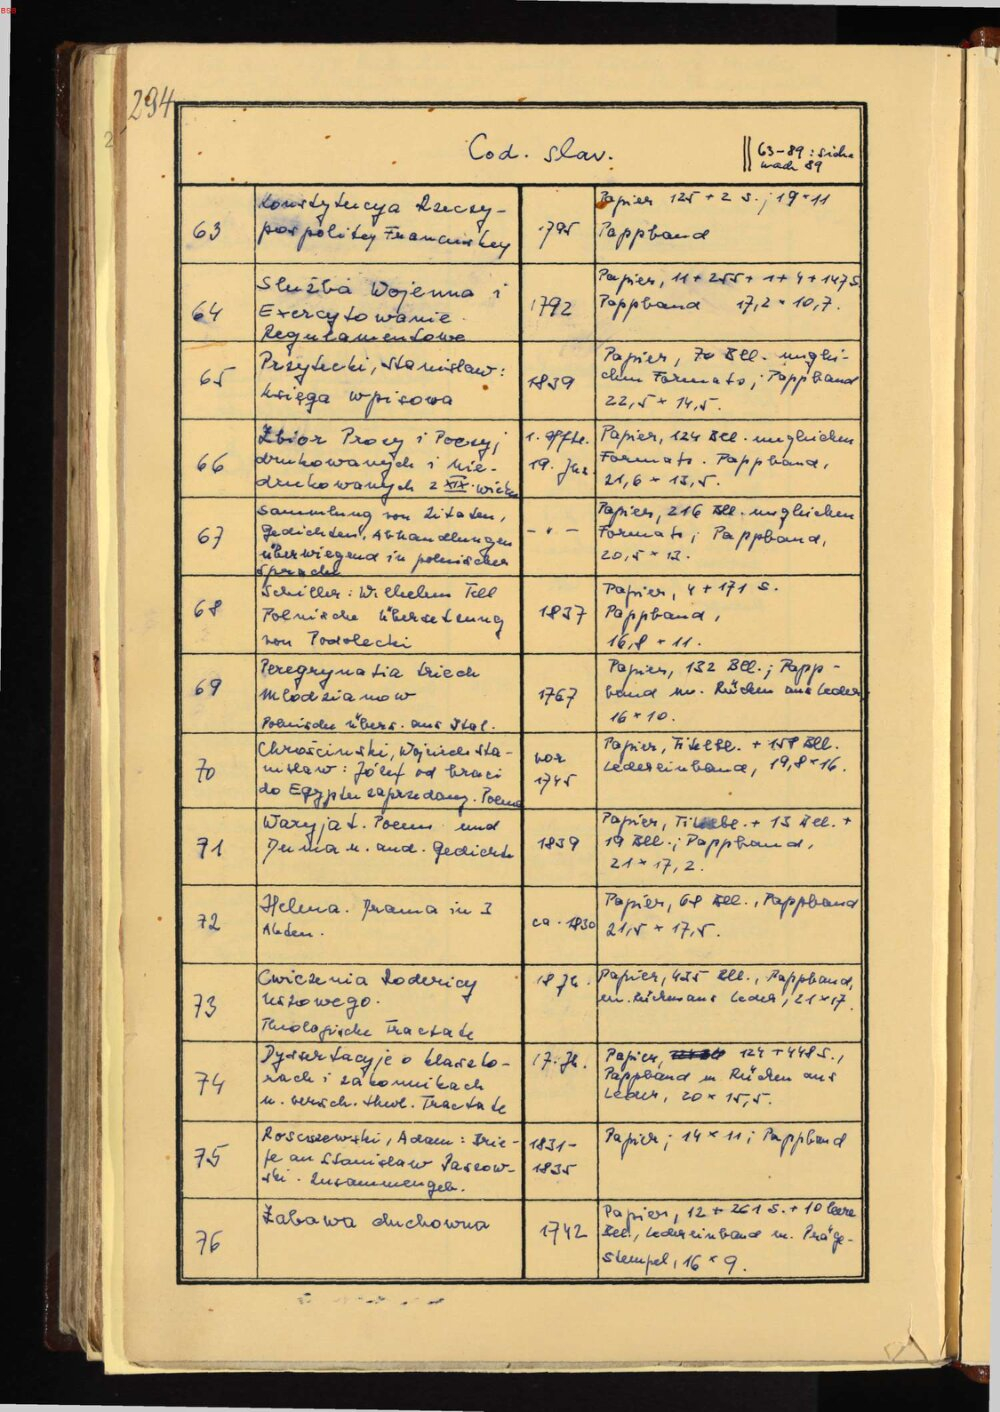 BSB
294
2
Cod. slav.
63-89: siehe
nach 89
63
Konstytucya Rzeczy-
pospolitey Francuskey
1795
Papier 125 + 2 S.; 19 × 11
Pappband
64
Służba Wojenna i
Exercytowanie
Regulamentowe
1792
Papier, 11 + 255 + 1 + 4 + 147 S.
Pappband 17,2 × 10,7.
65
Przyłecki, Stanisław:
Księga wpisowa
1839
Papier, 70 Bll. unglei-
chen Formats; Pappband
22,5 × 14,5.
66
Zbior Prozy i Poezyj
drukowanych i nie-
drukowanych z XIX. wieku
1. Hfte.
19. Jh.
Papier, 124 Bll. ungleichen
Formats. Pappband,
21,6 × 13,5.
67
Sammlung von Zitaten,
Gedichten, Abhandlungen
überwiegend in polnischer
Sprache
- " -
Papier, 216 Bll. ungleichen
Formats; Pappband,
20,5 × 13.
68
Schiller: Wilhelm Tell
Polnische Übersetzung
von Podolecki
1837
Papier, 4 + 171 S.
Pappband,
16,8 × 11.
69
Peregrynatia trzech
Młodzianow
Polnische Übers. aus Ital.
1767
Papier, 132 Bll.; Papp-
band m. Rücken aus Leder
16 × 10.
70
Chrościnski, Wojciech Sta-
nisław: Józef od braci
do Egyptu zaprzedany. Poema
vor
1745
Papier, Titelbl. + 158 Bll.
Ledereinband, 19,8 × 16.
71
Waryjat. Poem und
Duma u. and. Gedichte
1839
Papier, Titelbl. + 13 Bll. +
19 Bll.; Pappband,
21 × 17,2.
72
Helena. Drama in 3
Akten.
ca. 1830
Papier, 68 Bll., Pappband
21,5 × 17,5.
73
Cwiczenia Rodericy
Theologische Tractate
18 Jh.
Papier, 435 Bll., Pappband,
m. Rücken aus Leder, 21 × 17.
74
Dyssertacyje o klaszto-
rach i zakonnikach
u. versch. theol. Tractate
17. Jh.
Papier, 124 + 448 S.,
Pappband m Rücken aus
Leder, 20 × 15,5.
75
Rosciszewski, Adam: Brie-
fe an Stanislaw Jaszow-
ski. Zusammengeb.
1831-
1835
Papier; 14 × 11; Pappband
76
Zabawa duchowna
1742
Papier, 12 + 261 S. + 10 leere
Bll., Ledereinband m. Präge-
stempel, 16 × 9.